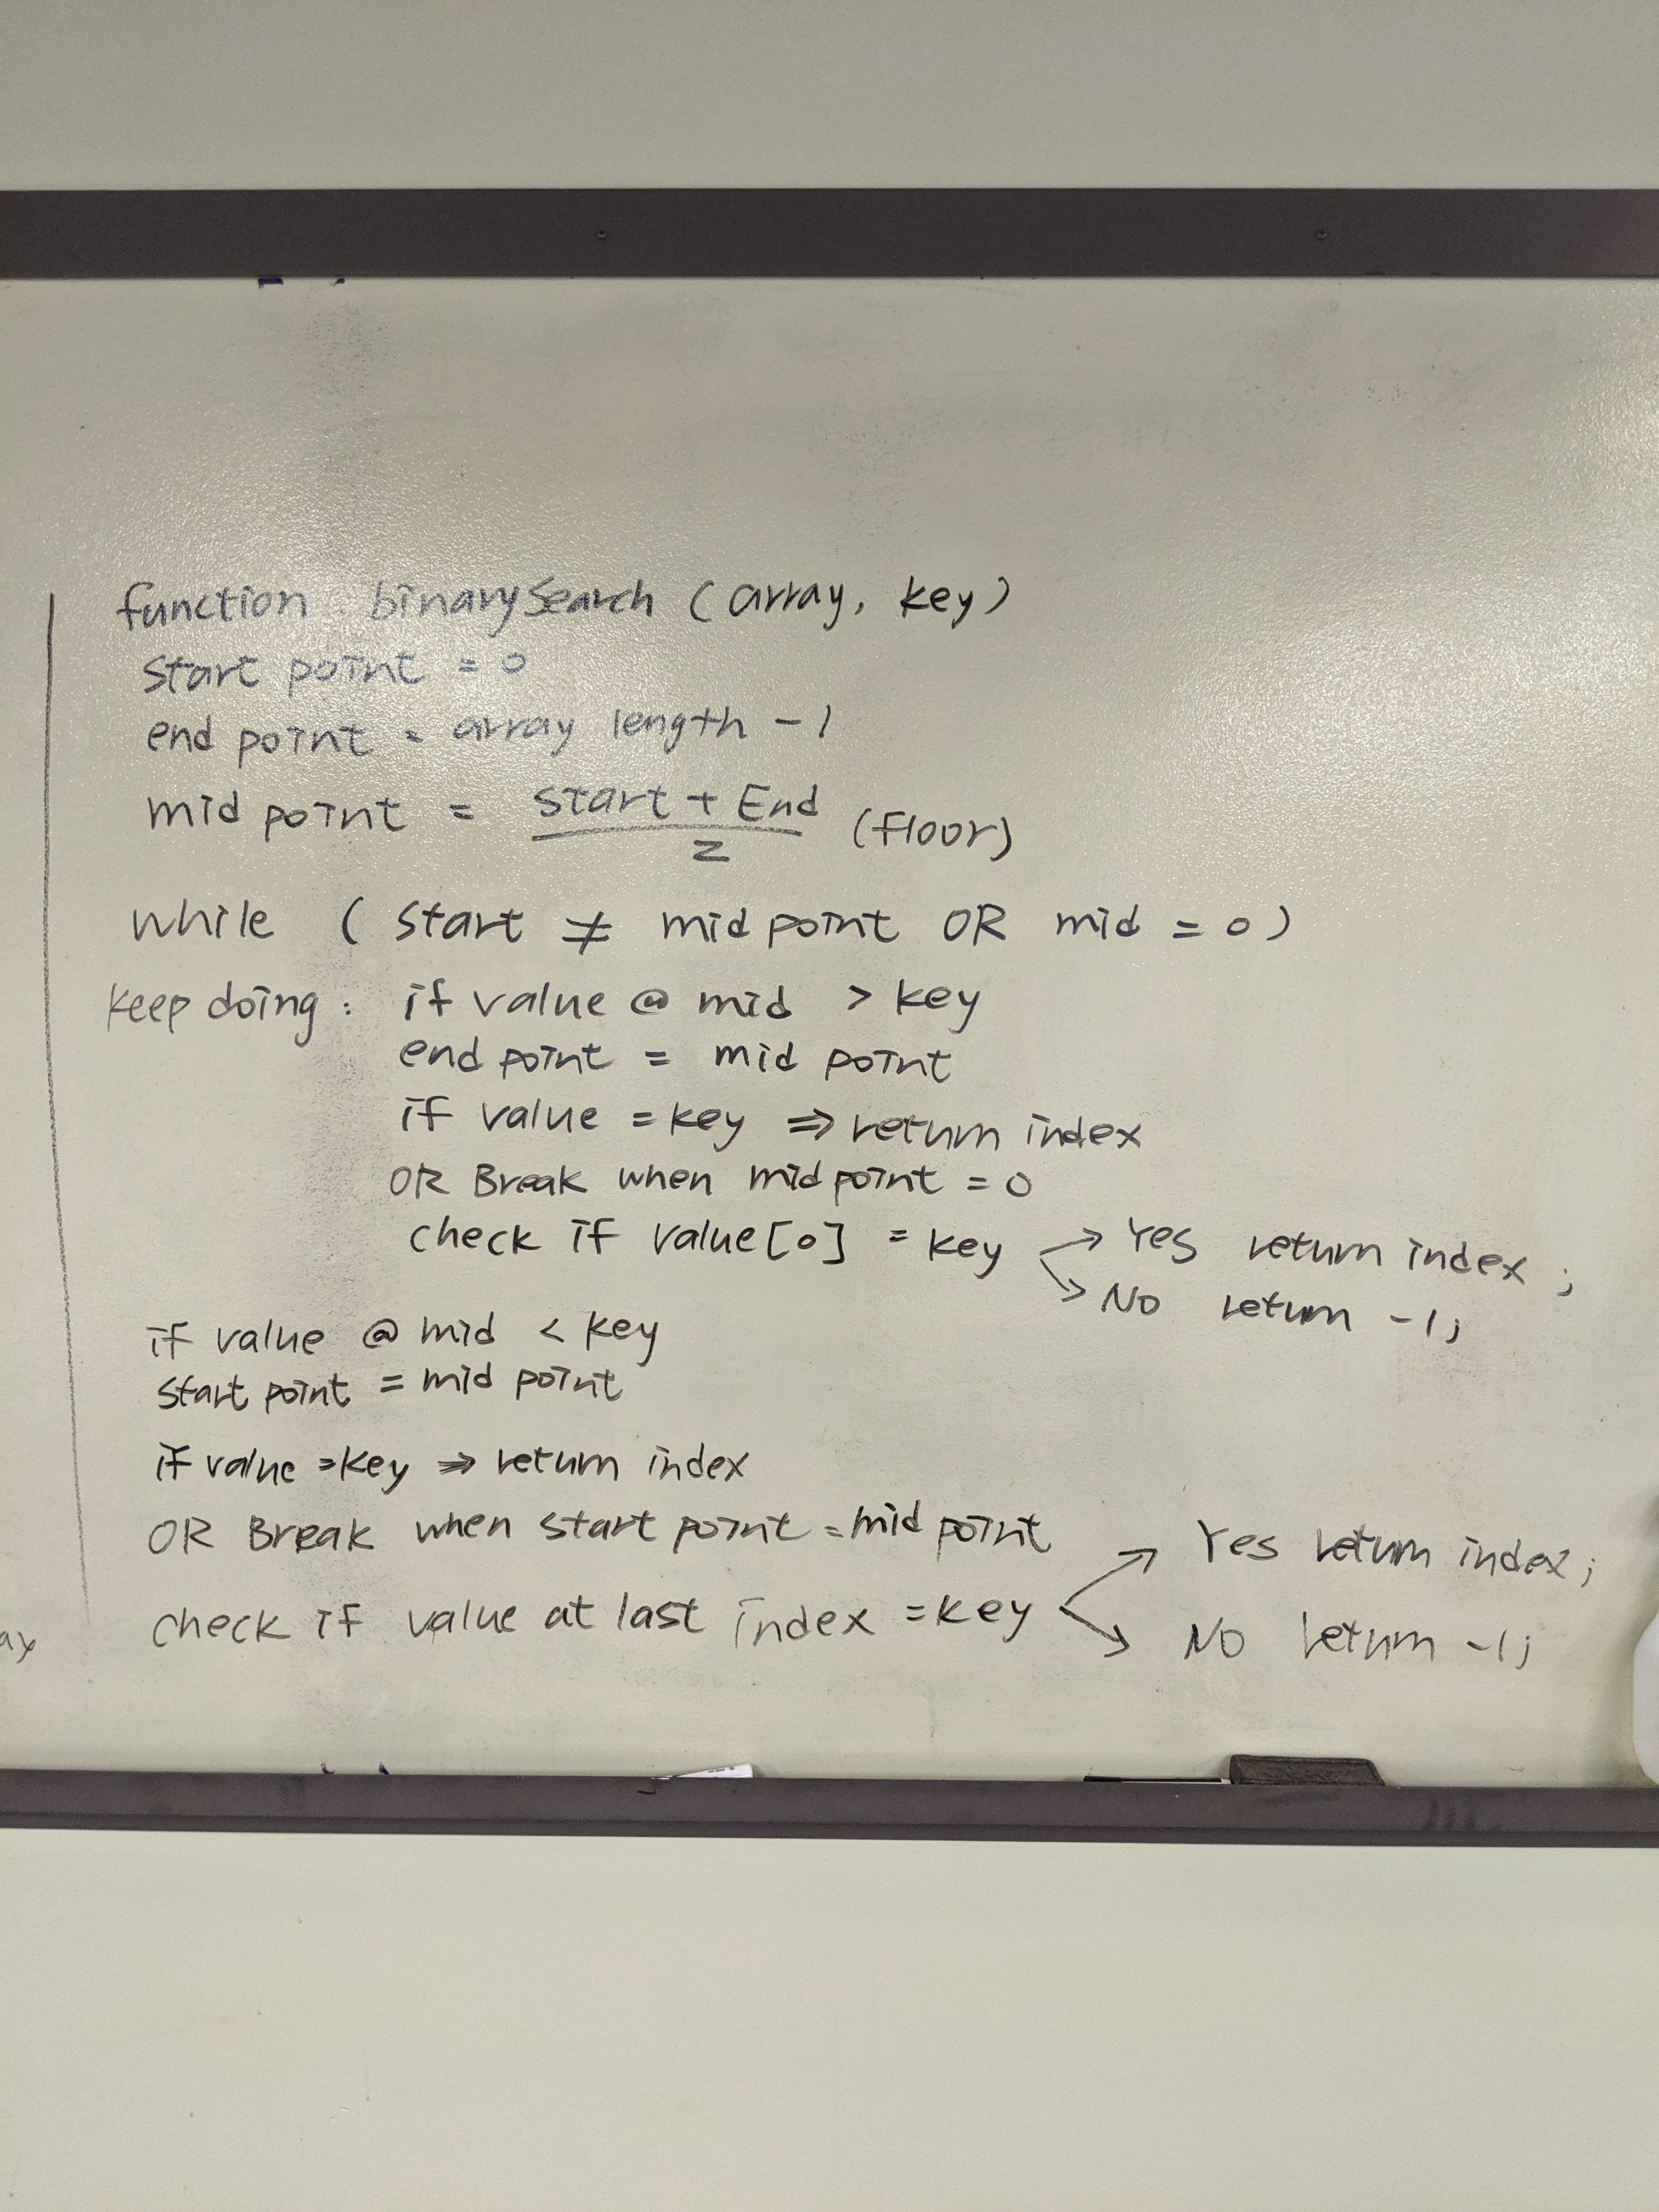 function binarySearch (array, key)
Start point = 0
end point = array length - 1
mid point = Start + End / 2 (floor)
while ( start ≠ mid point OR mid = 0 )
keep doing : if value @ mid > key
end point = mid point
if value = key ⇒ return index
OR Break when mid point = 0
check if value[0] = key → Yes return index ;
→ No return -1;
if value @ mid < key
start point = mid point
if value = key ⇒ return index
OR Break when start point = mid point
check if value at last index = key → Yes return index;
→ No return -1;